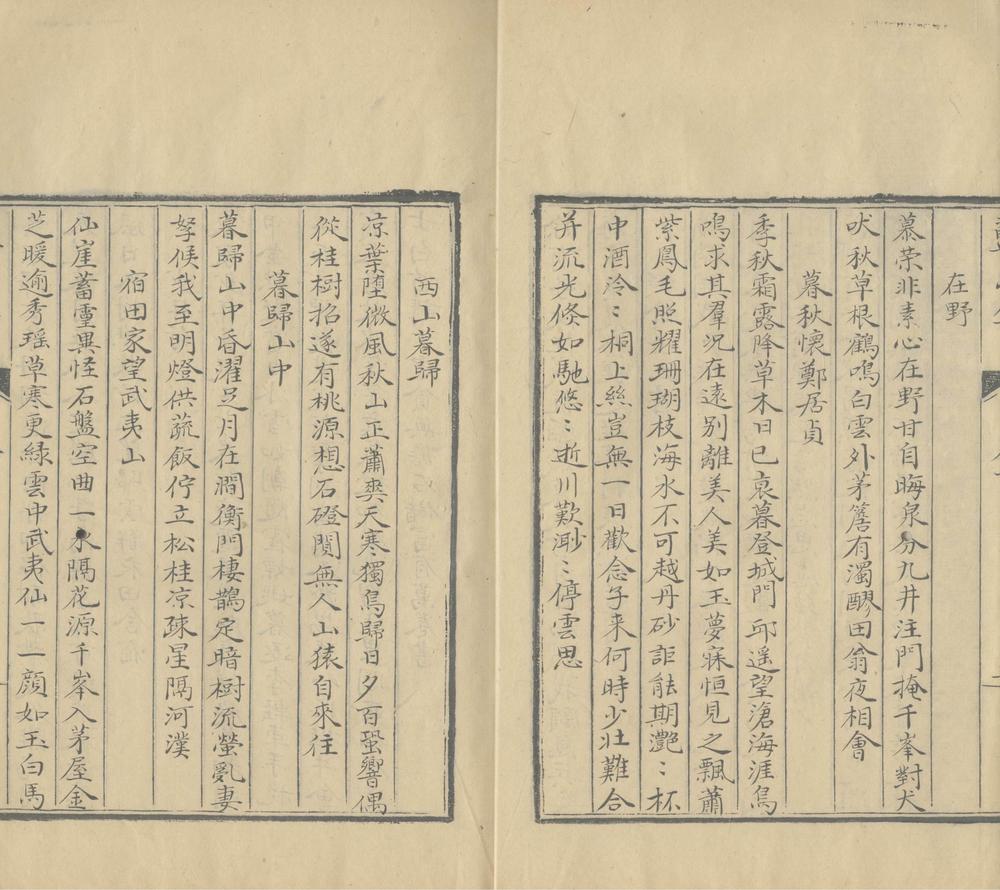 在野
慕荣非素心在野甘自晦泉分九井注門掩千峯對犬
吠秋草根鶴鳴白雲外茅簷有濁醪田翁夜相會
暮秋懷鄭居貞
季秋霜露降草木日已衰暮登城門邱遥望滄海涯鳥
鳴求其羣况在遠别離美人美如玉夢寐恒見之飄蕭
紫鳳毛照耀珊瑚枝海水不可越丹砂詎能期灔〻杯
中酒泠〻桐上絲豈無一日歡念子来何時少壮難合
并流光倏如馳悠〻逝川歎渺〻停雲思
西山暮歸
凉葉堕微風秋山正蕭爽天寒獨鳥歸日夕百蛩響偶
從桂樹招遂有桃源想石磴閴無人山猿自來往
暮歸山中
暮歸山中昏濯足月在澗衡門棲鵲定暗樹流螢亂妻
孥候我至明燈供蔬飯佇立松桂凉疎星隔河漢
宿田家望武夷山
仙崖蓄靈異怪石盤空曲一水隔花源千峯入茅屋金
芝暖逾秀瑶草寒更緑雲中武夷仙一一顔如玉白馬